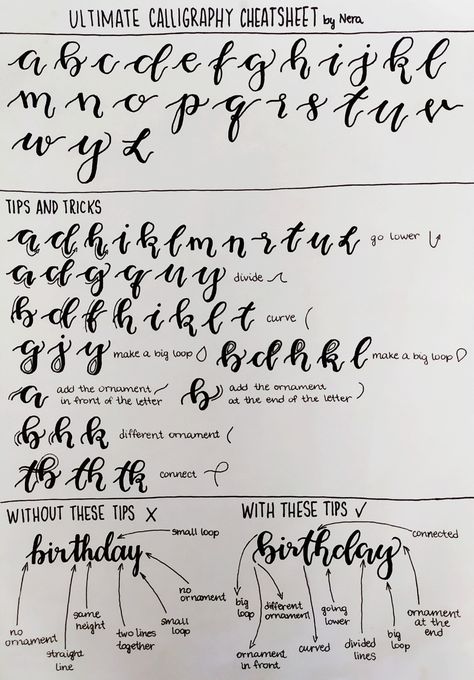 ULTIMATE CALLIGRAPHY CHEATSHEET by Nera
a b c d e f g h i j k l
m n o p q r s t u v
w y z
TIPS AND TRICKS
a d h i k l m n r t u z go lower
a d g q u y divide
b d f h i k l t curve
g j y make a big loop b d h k l make a big loop
a add the ornament
in front of the letter
b add the ornament
at the end of the letter
b h k different ornament
tb th tk connect
WITHOUT THESE TIPS X
small loop
birthday
no
ornament
small
loop
two lines
together
same
height
straight
line
no
ornament
WITH THESE TIPS ✓
connected
birthday
big
loop
different
ornament
going
lower
ornament
at the
end
ornament
in front
curved
divided
lines
big
loop